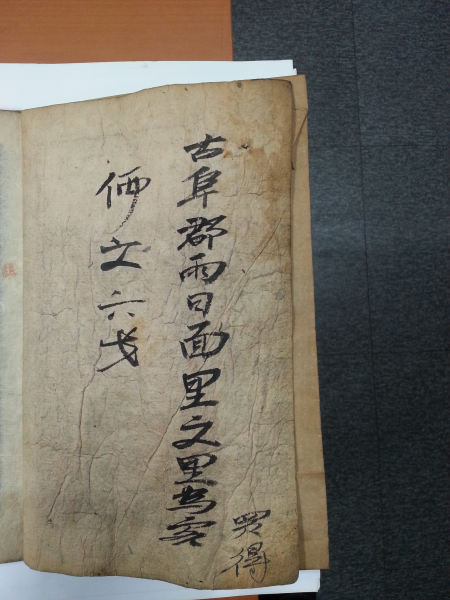 古阜郡雨日面里文里
買得
価文六戋